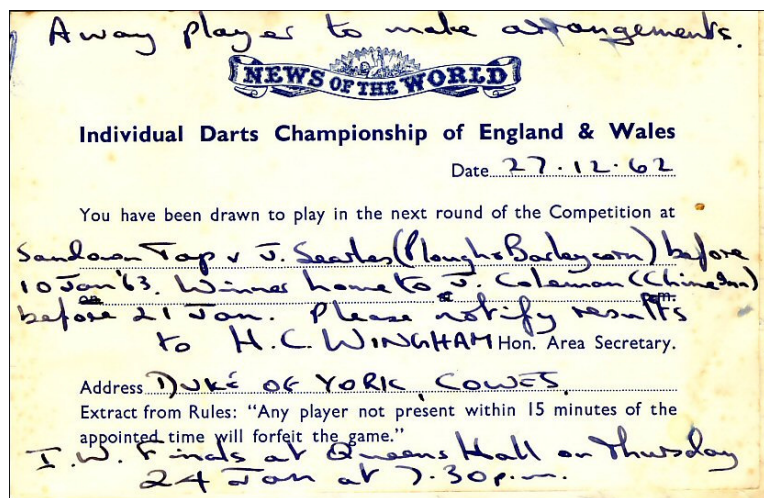 Away player to make arrangements.
NEWS OF THE WORLD
Individual Darts Championship of England & Wales
Date 27.12.62
You have been drawn to play in the next round of the Competition at
Sandown Tap v J. Searles (Plough & Barleycorn) before
10 Jan '63. Winner home to J. Coleman (Chine Inn)
on at p.m.
before 21 Jan. Please notify results
to H.C. WINGHAM Hon. Area Secretary.
Address DUKE OF YORK, COWES
Extract from Rules: "Any player not present within 15 minutes of the
appointed time will forfeit the game."
I.W. Finals at Queens Hall on Thursday
24 Jan at 7.30p.m.